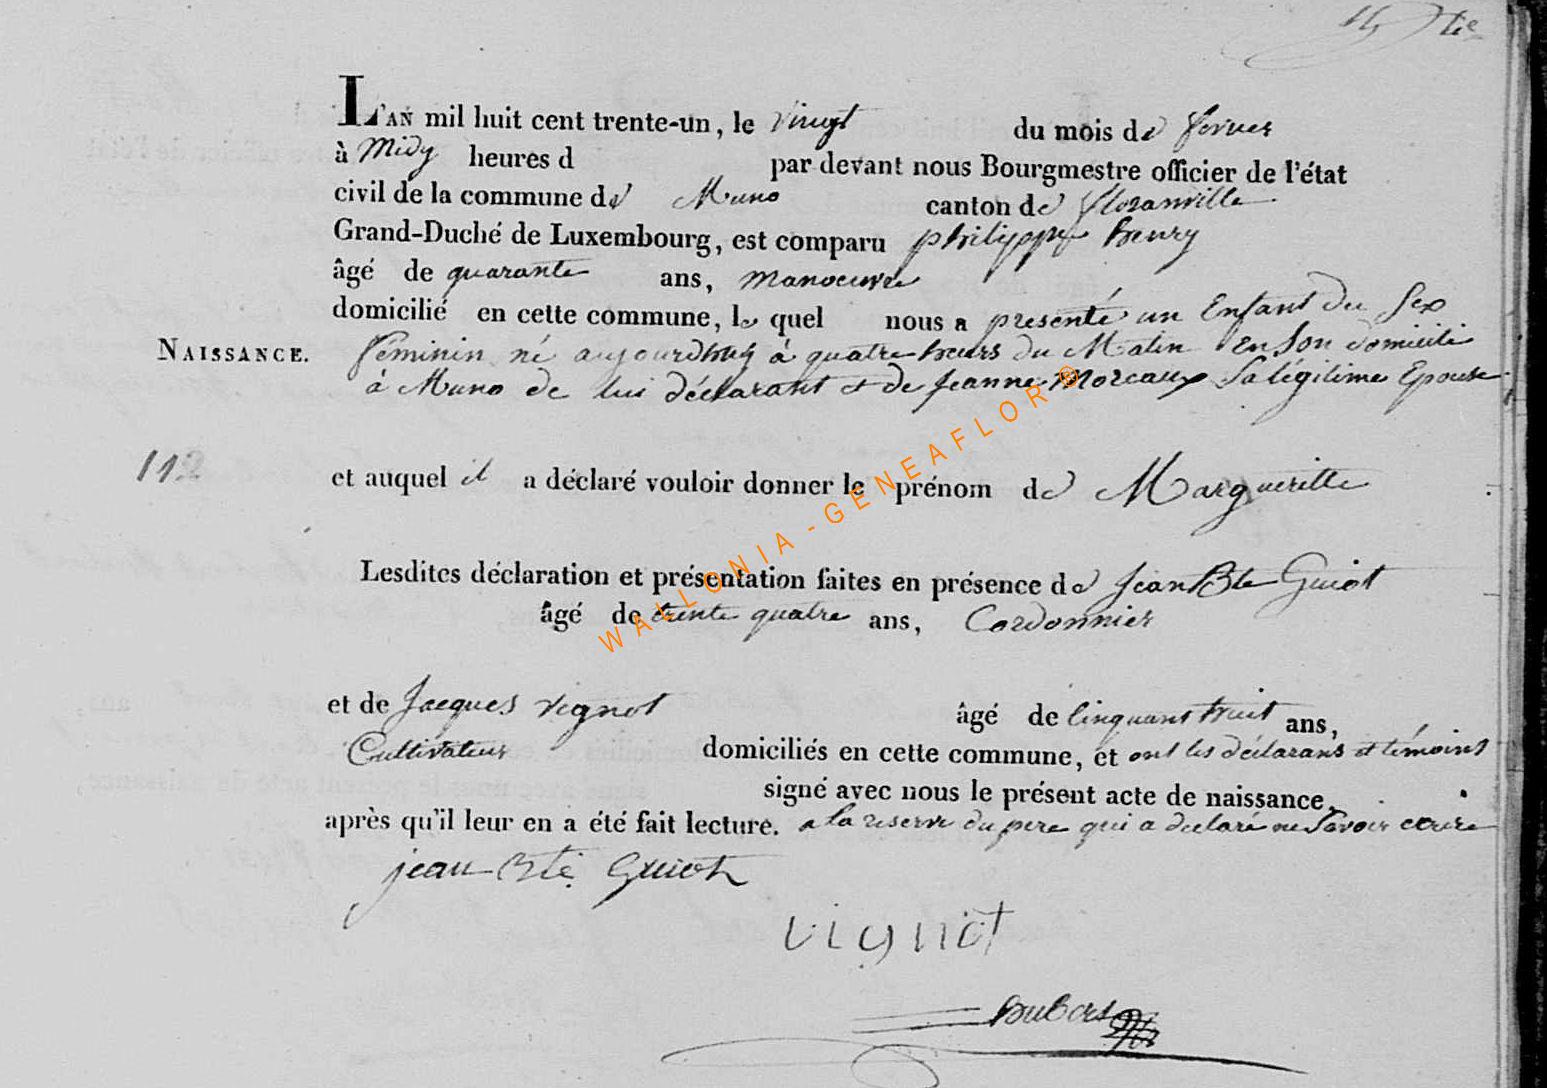 L'AN mil huit cent trente-un, le vingt du mois de fevrier
à Midy heures d par devant nous Bourgmestre officier de l'état
civil de la commune de Muno canton de floranville
Grand-Duché de Luxembourg, est comparu philippe henry
âgé de quarante ans, manoeuvre
domicilié en cette commune, le quel nous a presenté un Enfant du Sex
NAISSANCE. feminin né aujourdhuy à quatre heurs du Matin En Son domicile
à Muno de lui déclarant et de Jeanne Moreaux Sa légitime Epouse
112 et auquel il a déclaré vouloir donner le prénom de Margueritte
Lesdites déclaration et présentation faites en présence de Jean Bte Guiot
âgé de trente quatre ans, Cordonnier
et de Jacques vignot âgé de Cinquant huit ans,
Cultivateur domiciliés en cette commune, et ont les déclarans et témoins
signé avec nous le présent acte de naissance,
après qu'il leur en a été fait lecture. a la reserve du pere qui a declaré ne Savoir ecrire
jean Bte Guiot
vignot
huBers
WALLONIA-GENEAFLOR®